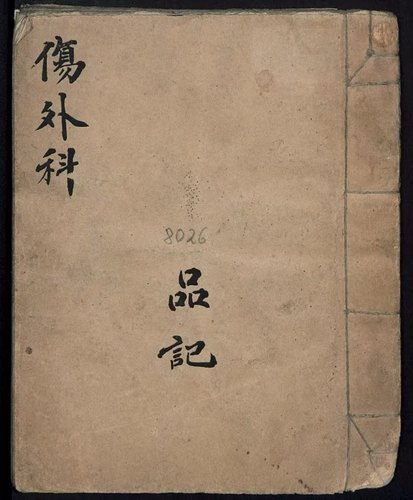 傷外科
8026
品記